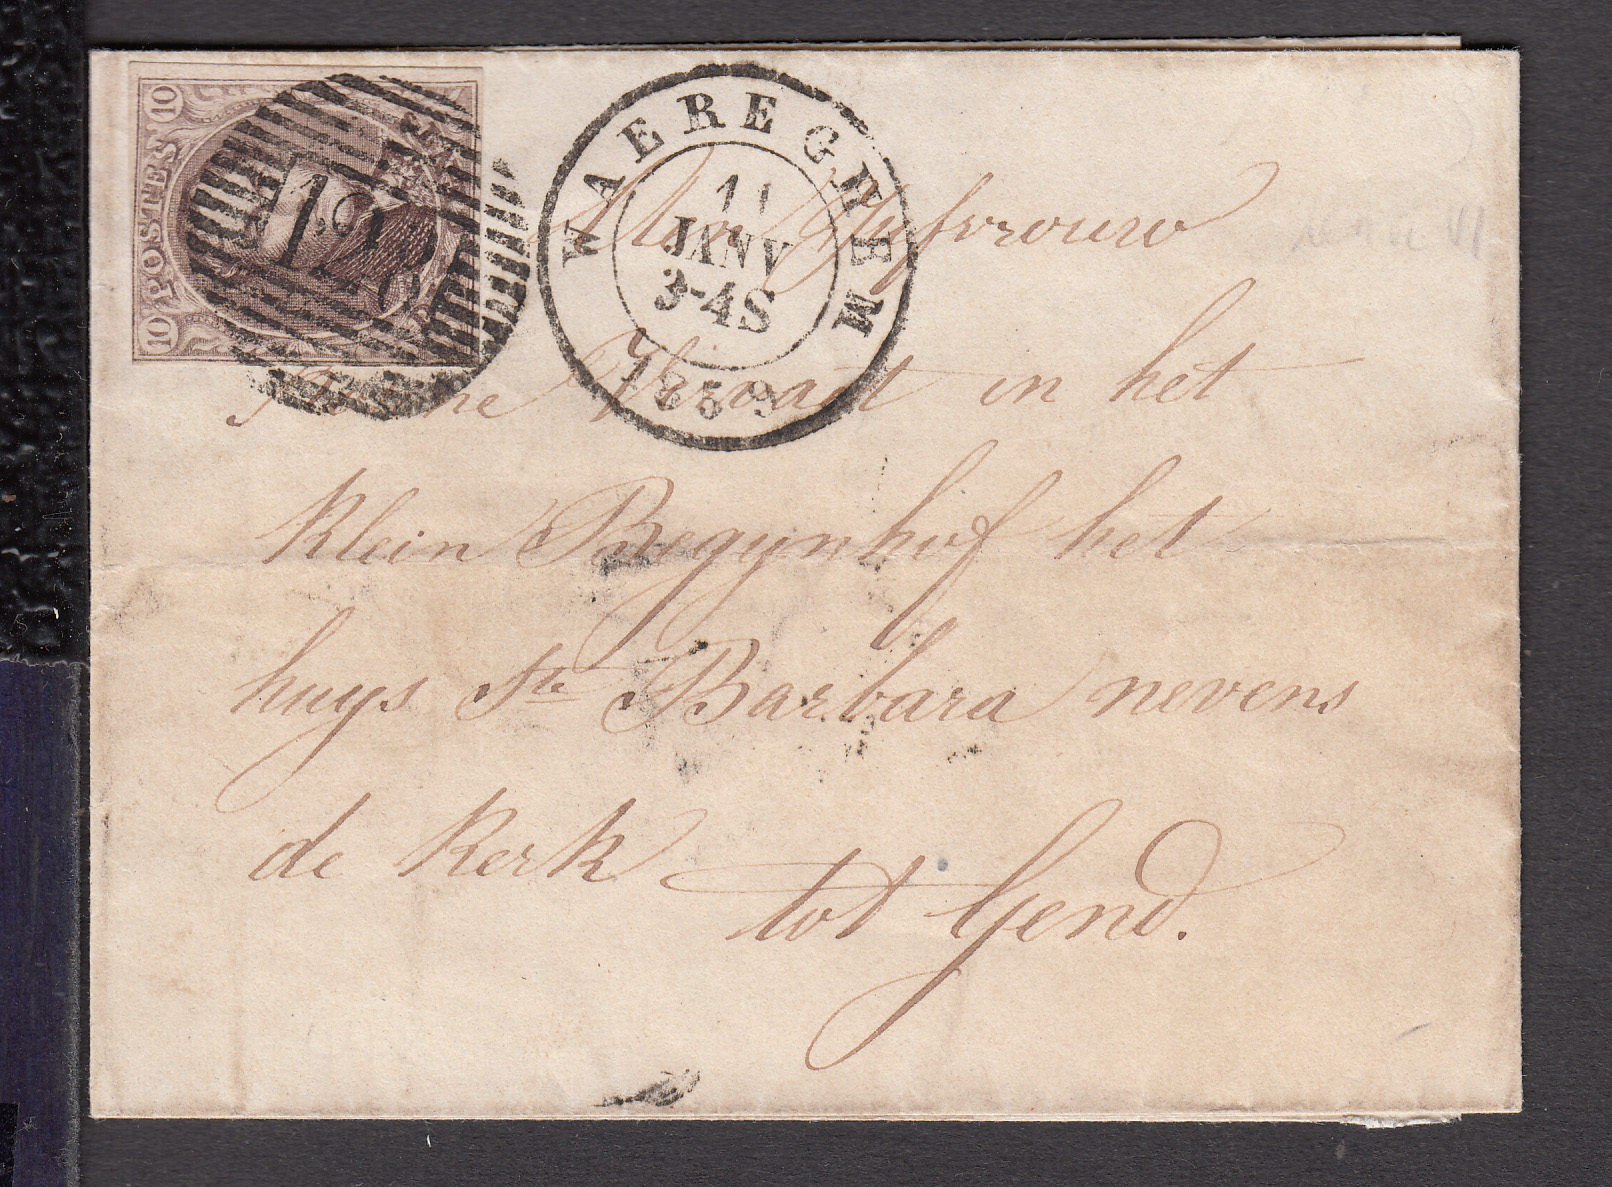 10
POSTES
10
WAEREGHEM
11
JANV
3-4S
1859
Mejufvrouw
in het
klein Begynhof het
huys Ste Barbara nevens
de Kerk
tot Gend.